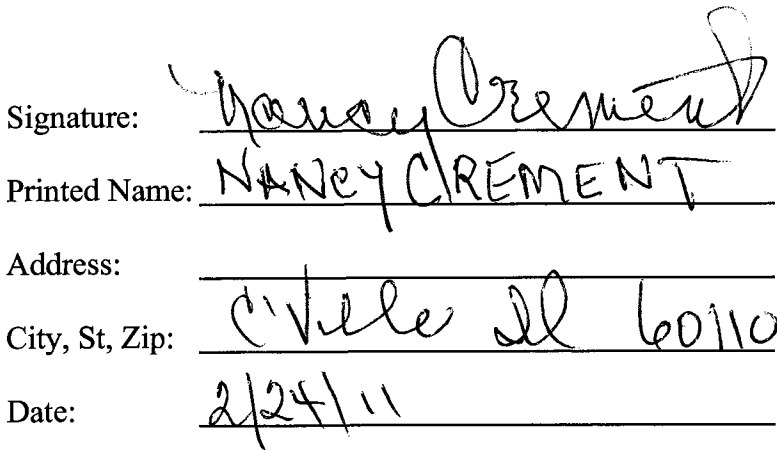 Signature: Nancy Crement
Printed Name: NANCY CREMENT
Address:
City, St, Zip: C'Ville Il 60110
Date: 2/24/11